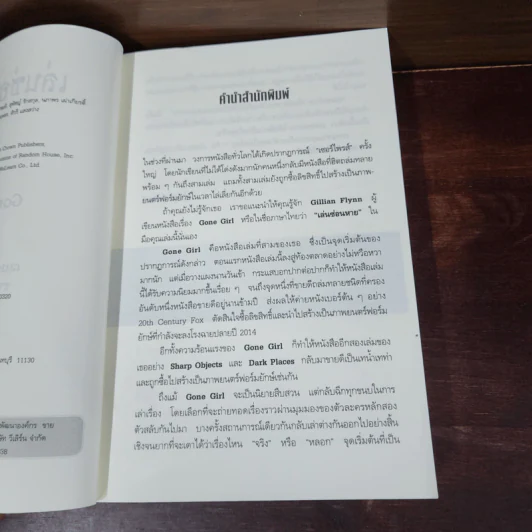 เล่นซ่อน
Crown Publishers,
Random House, Inc.
11130
38
คำนำสำนักพิมพ์
ในช่วงที่ผ่านมา วงการหนังสือทั่วโลกได้เกิดปรากฏการณ์ "เซอร์ไพรส์" ครั้ง
ใหญ่ โดยนักเขียนที่ไม่ได้โด่งดังมากนักคนหนึ่งกลับมีหนังสือที่ฮิตถล่มทลาย
พร้อม ๆ กันถึงสามเล่ม แถมทั้งสามเล่มยังถูกซื้อลิขสิทธิ์ไปสร้างเป็นภาพ-
ยนตร์ฟอร์มยักษ์ในเวลาไล่เลี่ยกันอีกด้วย
ถ้าคุณยังไม่รู้จักเธอ เราขอแนะนำให้คุณรู้จัก Gillian Flynn ผู้
เขียนหนังสือเรื่อง Gone Girl หรือในชื่อภาษาไทยว่า "เล่นซ่อนหาย" ใน
มือคุณเล่มนี้นั่นเอง
Gone Girl คือหนังสือเล่มที่สามของเธอ ซึ่งเป็นจุดเริ่มต้นของ
ปรากฏการณ์ดังกล่าว ตอนแรกหนังสือเล่มนี้ลงสู่ท้องตลาดอย่างไม่หวือหวา
มากนัก แต่เมื่อวางแผงนานวันเข้า กระแสบอกปากต่อปากก็ทำให้หนังสือเล่ม
นี้ได้รับความนิยมมากขึ้นเรื่อย ๆ จนถึงจุดหนึ่งที่ขายดีถล่มทลายชนิดที่ครอง
อันดับหนึ่งหนังสือขายดีอยู่นานข้ามปี ส่งผลให้ค่ายหนังเบอร์ต้น ๆ อย่าง
20th Century Fox ตัดสินใจซื้อลิขสิทธิ์และนำไปสร้างเป็นภาพยนตร์ฟอร์ม
ยักษ์ที่กำลังจะลงโรงฉายปลายปี 2014
อีกทั้งความร้อนแรงของ Gone Girl ก็ทำให้หนังสืออีกสองเล่มของ
เธออย่าง Sharp Objects และ Dark Places กลับมาขายดีเป็นเทน้ำเทท่า
และถูกซื้อไปสร้างเป็นภาพยนตร์ฟอร์มยักษ์เช่นกัน
ถึงแม้ Gone Girl จะเป็นนิยายสืบสวน แต่กลับฉีกทุกขนบในการ
เล่าเรื่อง โดยเลือกที่จะถ่ายทอดเรื่องราวผ่านมุมมองของตัวละครหลักสอง
ตัวสลับกันไปมา บางครั้งสถานการณ์เดียวกันกลับเล่าต่างกันออกไปอย่างสิ้น
เชิงจนยากที่จะเดาได้ว่าเรื่องไหน "จริง" หรือ "หลอก" จุดเริ่มต้นที่เป็น